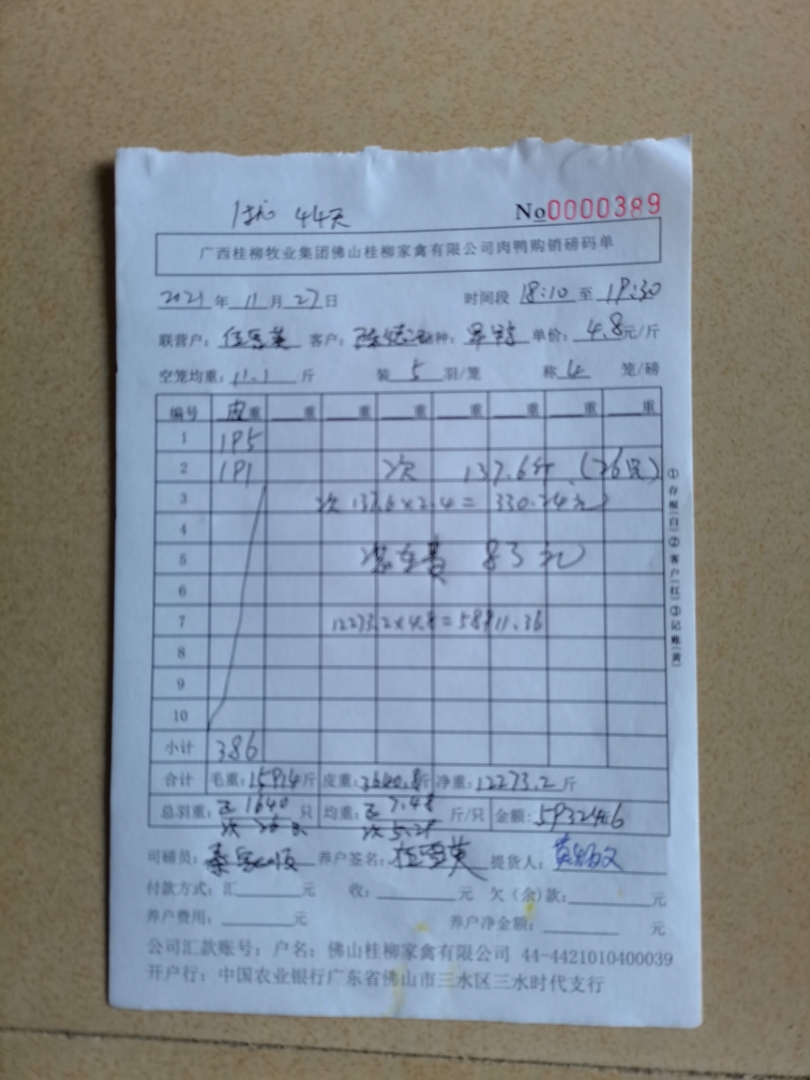 44天 No0000389
广西桂柳牧业集团佛山桂柳家禽有限公司肉鸭购销磅码单
2021年11月27日 时间段 18:10 至 19:30
联营户: 客户: 种: 单价: 4.8元/斤
空笼均重: 11.1 斤 装 5 羽/笼 称 4 笼/磅
编号 皮重 重 重 重 重 重 重 重
1 195
2 191 次 137.6斤 (26只)
3 次 137.6×2.4= 330.24元
4
5 83元
6
7 12273.2×4.8=58911.36
8
9
10
小计 386
合计 毛重:15914斤 皮重:3640.8斤 净重:12273.2斤
总羽重: 正1640 只 均重: 正7.48 斤/只 金额:
次26只 次5.29
司磅员: 养户签名: 提货人:
付款方式:汇 元 收: 元 欠(余)款: 元
养户费用: 元 养户净金额: 元
公司汇款账号:户名:佛山桂柳家禽有限公司 44-4421010400039
开户行:中国农业银行广东省佛山市三水区三水时代支行
①存根(白)②客户(红)③记账(黄)